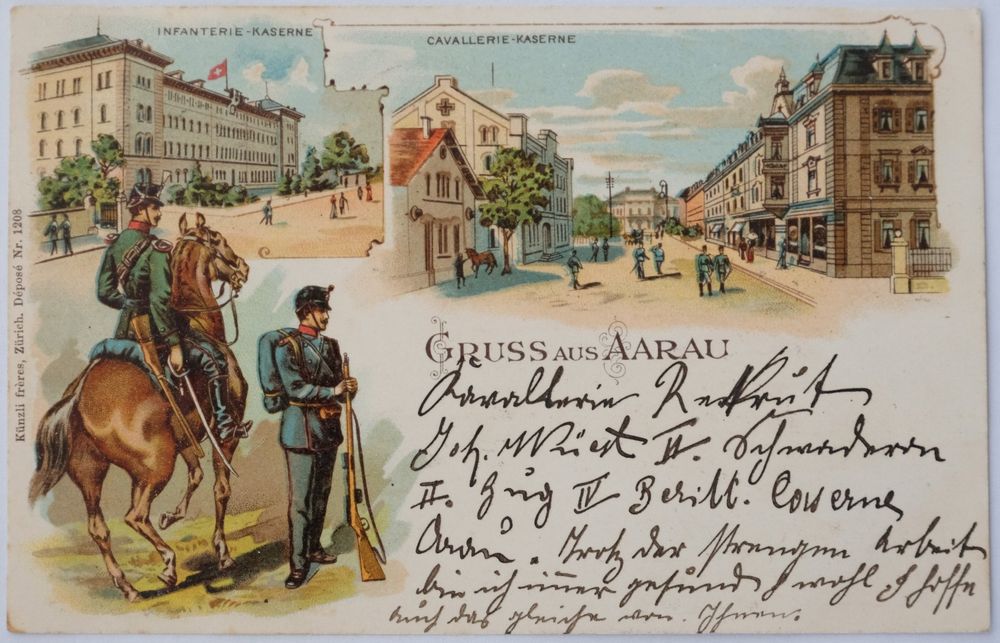 INFANTERIE-KASERNE
CAVALLERIE-KASERNE
Künzli frères, Zürich. Déposé Nr. 1208
GRUSS AUS AARAU
Cavallerie Rekrut
Joh. II. Schwadron
II. Zug IV Beritt. Caserne
Aarau. Trotz der strengen Arbeit
bin ich immer gesund & wohl & hoffe
auch das gleiche von Ihnen.